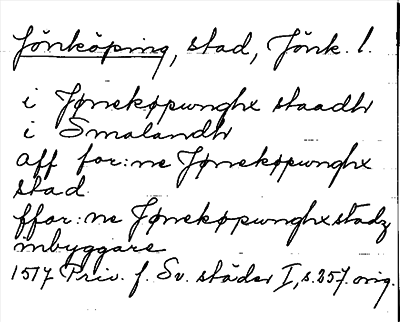 Jönköping, stad, Jönk. l.
i Jønekøpunghx staadh
i Smalandh
aff for:ne Jønekøpunghx
stad
ffor:ne Jønekøpunghx stadz
inbyggare
1517 Priv. f. Sv. städer I, s. 257. orig.